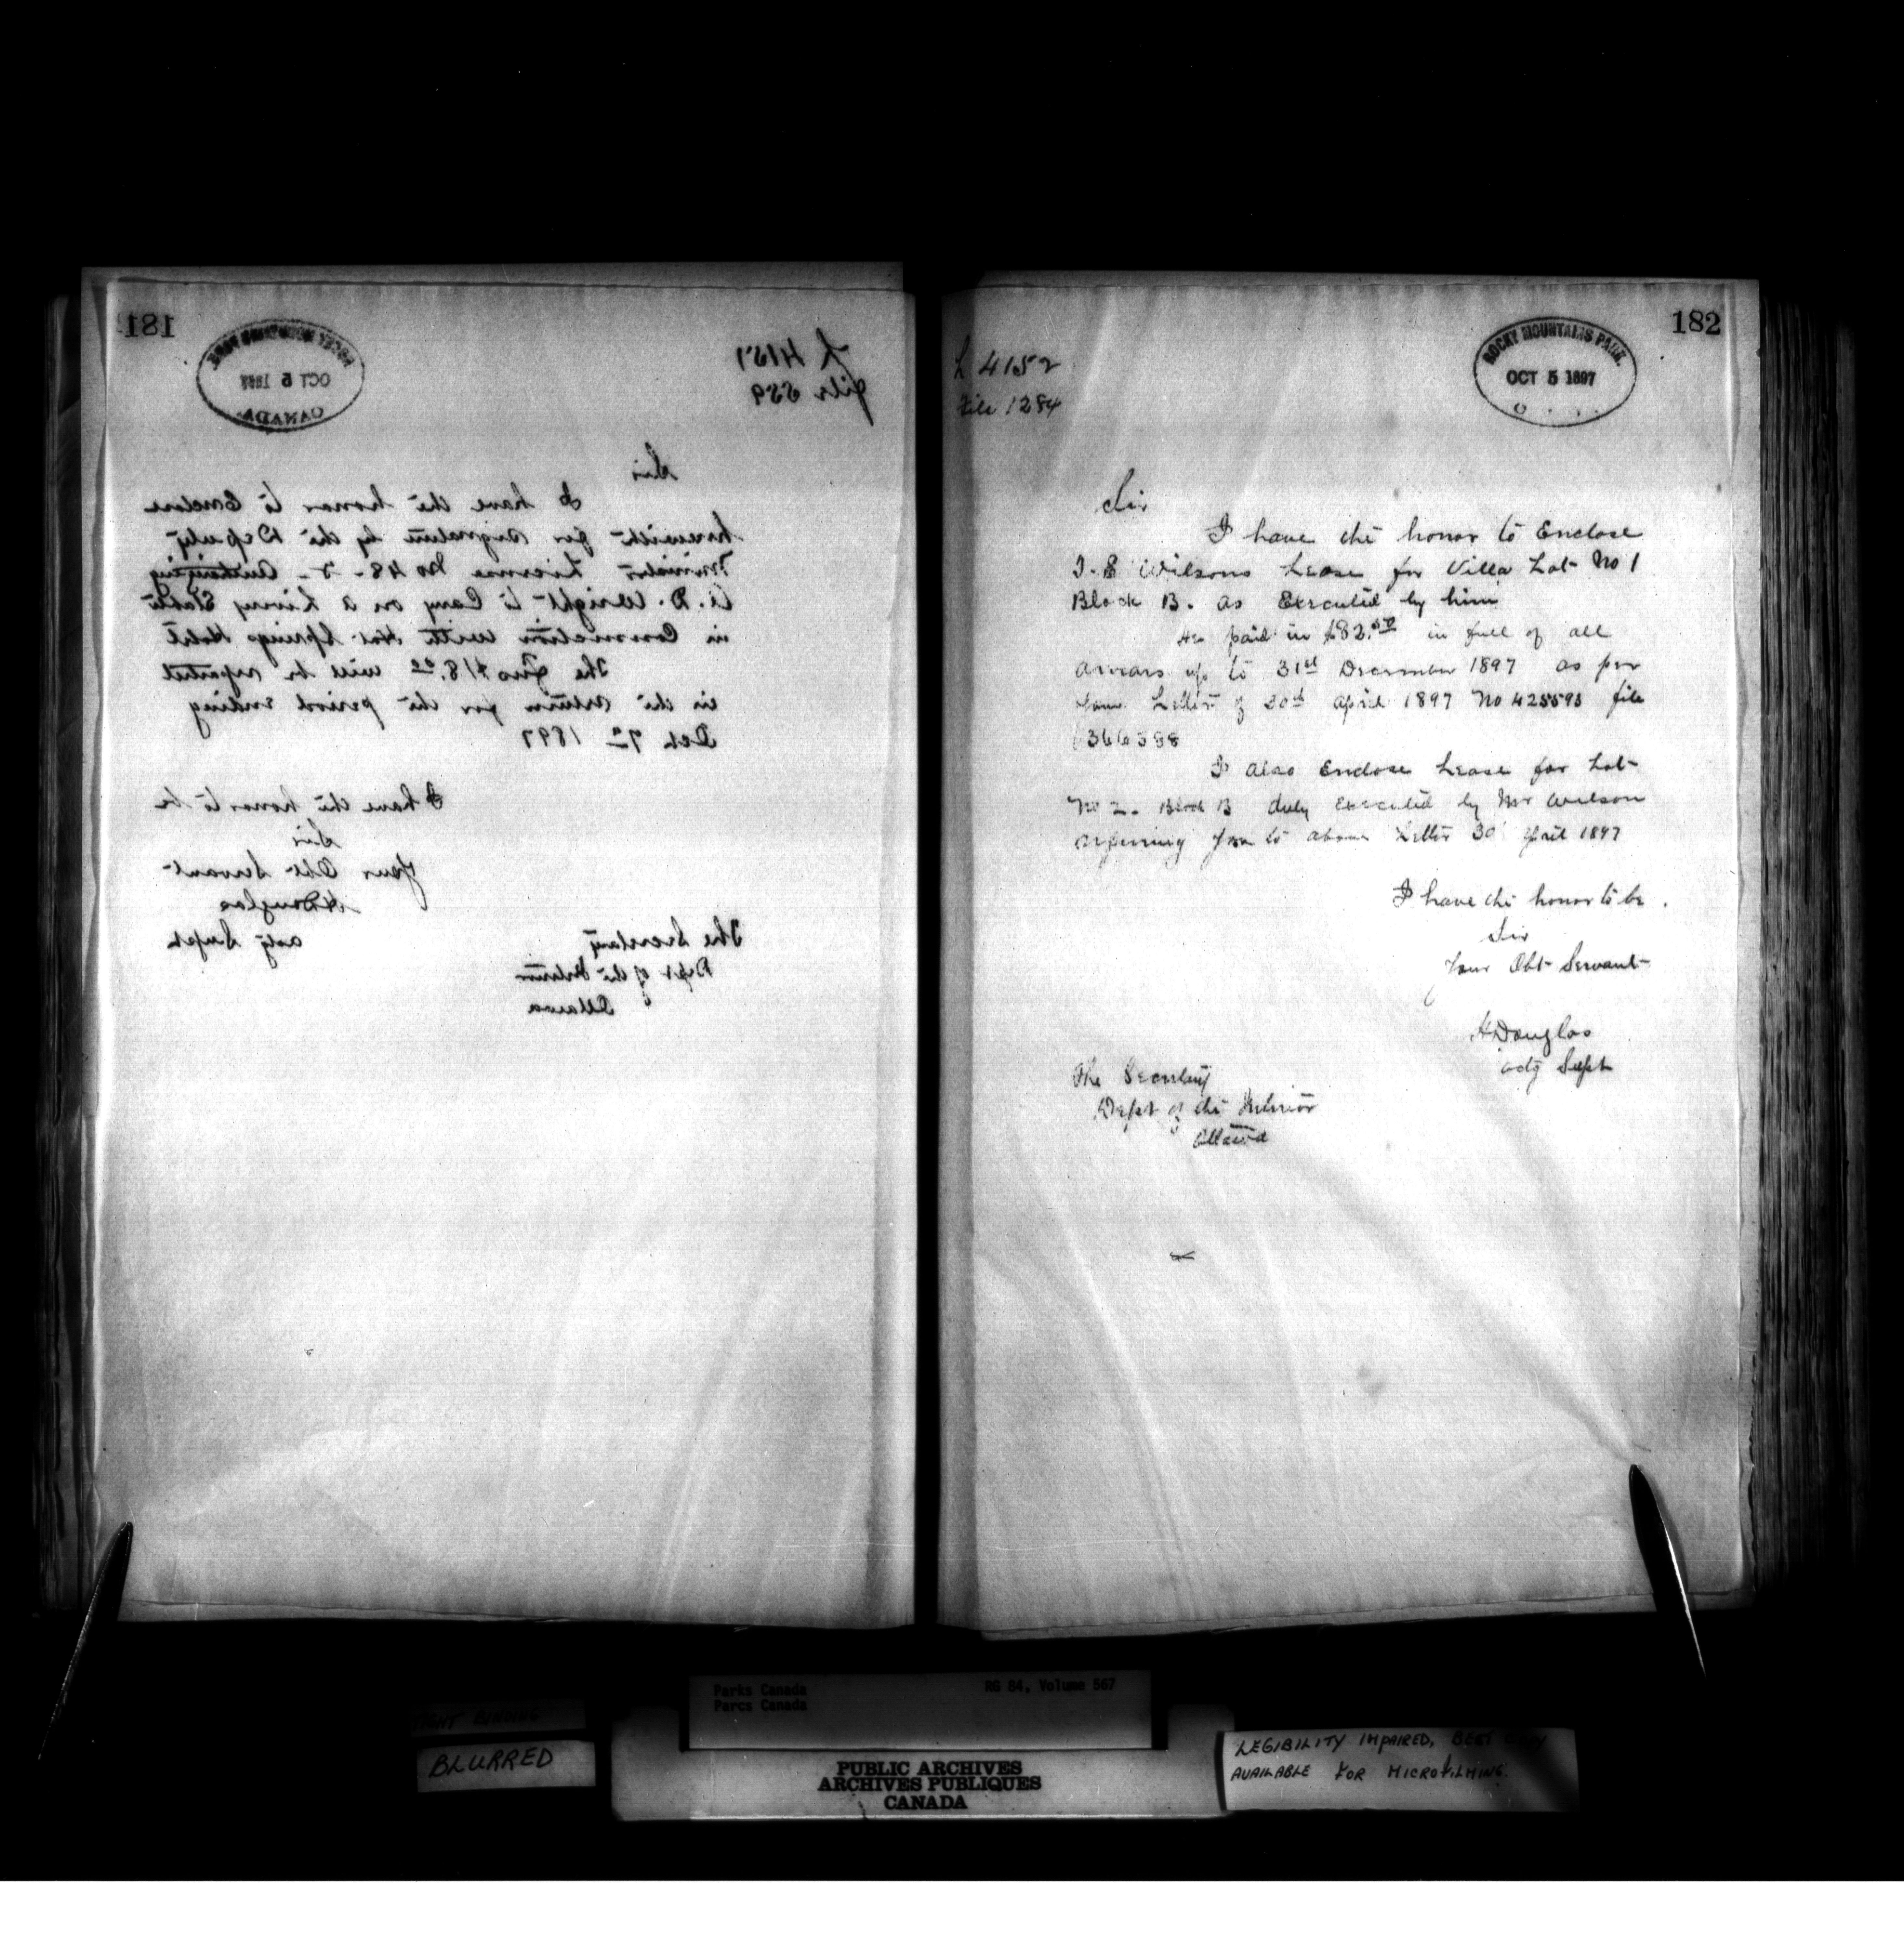 181
ROCKY MOUNTAINS PARK.
OCT 5 1897
CANADA.
L 4151
file 559
Sir
I have the honor to Enclose
herewith for signature by the Deputy
Minister License No 48 - Authorizing
W. D. Wright to Carry on a Livery Stable
in Connection with Hot Springs Hotel
The Fees $18.00 will be reported
in the return for the period ending
Oct 7th 1897
I have the honor to be
Sir
Your Obt Servant
H Douglas
actg Supt
The Secretary
Dept of the Interior
Ottawa
182
ROCKY MOUNTAINS PARK.
OCT 5 1897
L 4152
File 1284
Sir
I have the honor to Enclose
Wilsons Lease for Villa Lot No 1
Block B. as Executed by him
He paid in $82.50 in full of all
arrears up to 31st December 1897 as per
Your Letter of 30th April 1897 No 425593 file
366588
I also Enclose Lease for Lot
No 2. Block B duly executed by Mr Wilson
refering you to above Letter 30 April 1897
I have the honor to be
Sir
Your Obt Servant
H Douglas
actg Supt
The Secretary
Dept of the Interior
Ottawa
Parks Canada
Parcs Canada
RG 84, Volume 567
TIGHT BINDING
BLURRED
PUBLIC ARCHIVES
ARCHIVES PUBLIQUES
CANADA
LEGIBILITY IMPAIRED, BEST COPY
AVAILABLE FOR MICROFILMING.